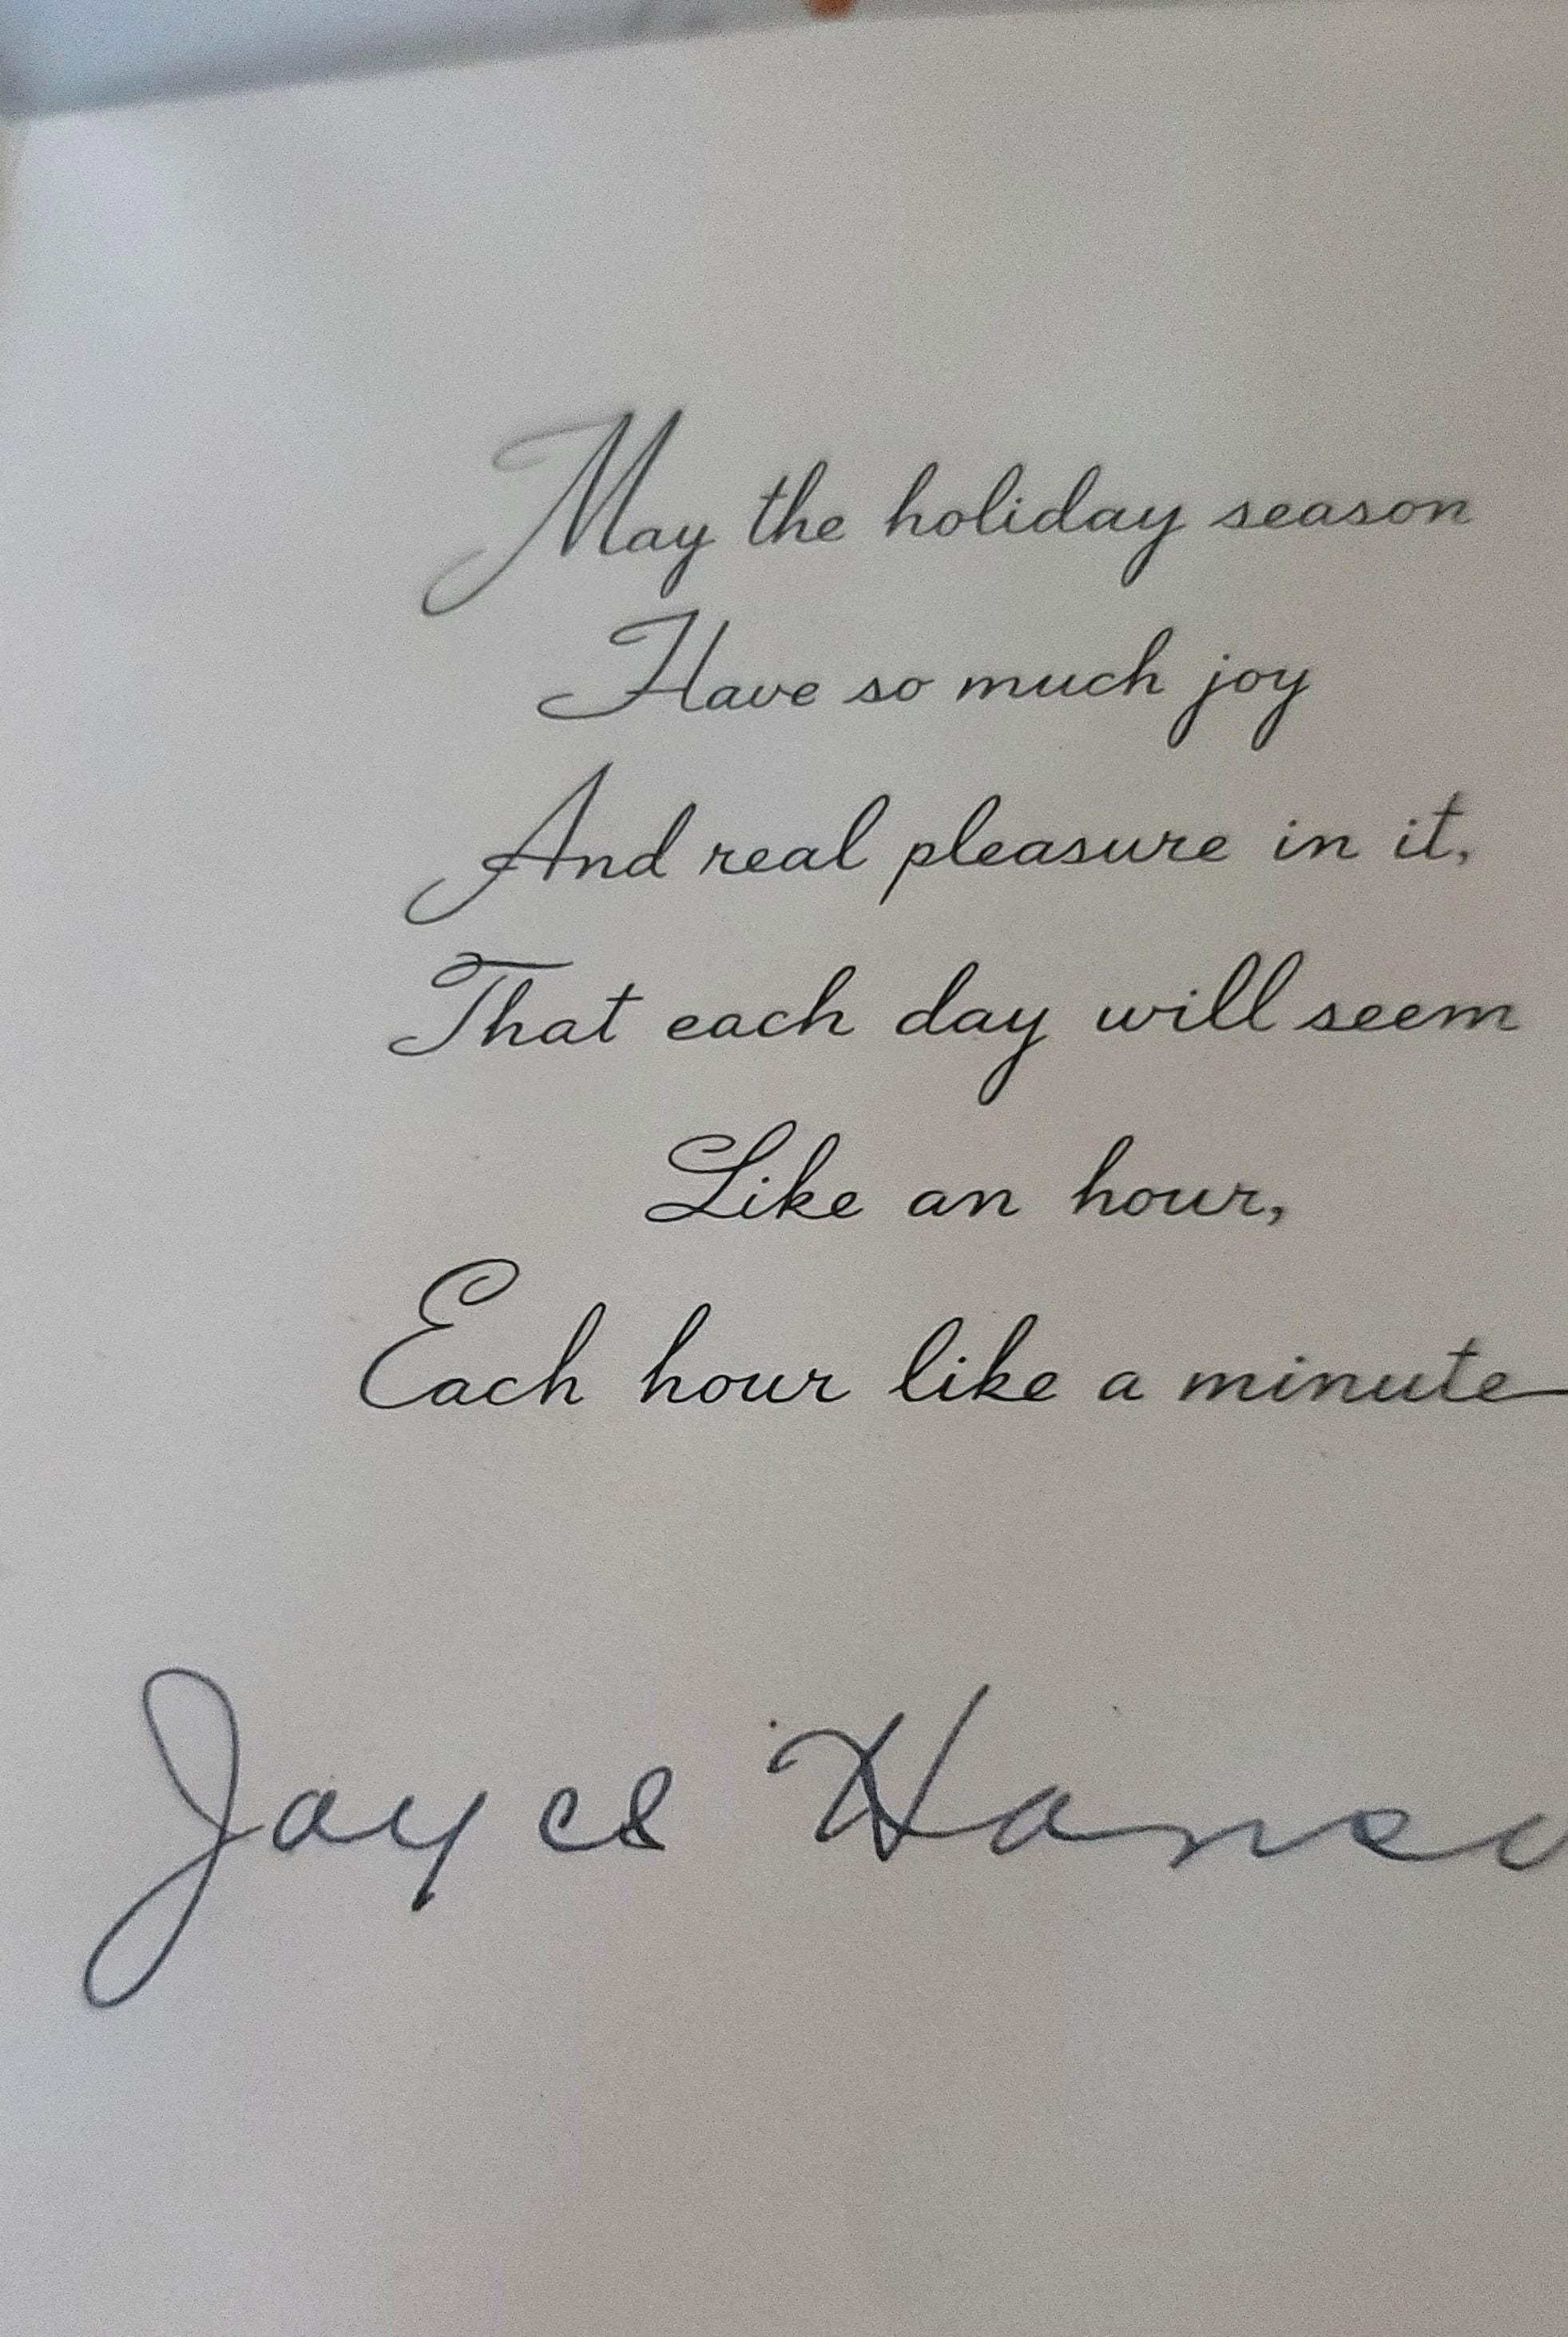 May the holiday season
Have so much joy
And real pleasure in it,
That each day will seem
Like an hour,
Each hour like a minute
Joyce